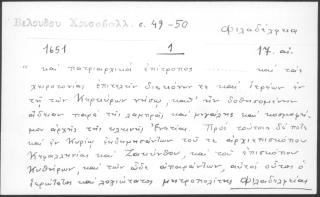 Βελούδου Χρυσόβουλλ. σ. 49-50
Φιλαδέλφεια
1651 1 17. αἰ.
" καὶ πατριαρχικὸς ἐπίτροπος ........ καὶ τὰς
χειροτονίας ἐπιτελῶν διακόνων τε καὶ ἱερέων ἐν
τῇ τῶν Κερκύρων νήσῳ, καθ' ἣν δοθησομένην
ἄδειαν παρὰ τῆς λαμπρᾶς καὶ μεγάλης καὶ
μου ἀρχῆς τῆς κλεινῆς Ἐνετίας. Πρὸς τούτοις δέ ποτε
καὶ ἐν Κυρίῳ ἐκδημησάντων τοῦ τε ἀρχιεπισκόπου
Κεφαλληνίας καὶ Ζακύνθου, καὶ τοῦ ἐπισκόπου
Κυθήρων, καὶ τῶν ὧδε ἀπαράντων, αὐτὸς οὗτος ὁ
ἱερώτατος καὶ λογιώτατος μητροπολίτης Φιλαδελφείας